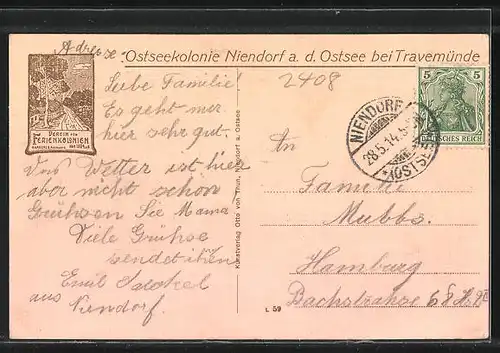 Adresse: Ostseekolonie Niendorf a. d. Ostsee bei Travemünde
VEREIN FÜR
FERIENKOLONIEN
Liebe Familie!
Es geht mir
hier sehr gut,
Das Wetter ist hier
aber nicht schön
Grühsen Sie Mama
Viele Grühse
sendet ihnen
Emil
aus
Niendorf.
Kunstverlag Otto von Thun, Niendorf a. Ostsee
2408
5 5
DEUTSCHES REICH
NIENDORF
28.5.14.5-
*(OSTSEE)
An
Familie
Mubbs.
Hamburg
Bachstrahse
L 59